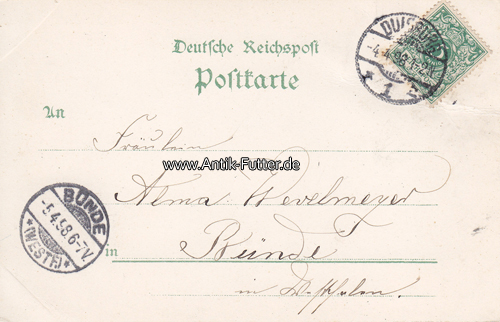 Deutsche Reichspost
Postkarte
DUISBURG
-4.4.98.1-2N
* 1
An
Fräulein
www.Antik-Futter.de
Alma Wevelmeyer
BÜNDE
-5.4.98.6-7V.
*(WESTF)*
in Bünde
in Westfalen.